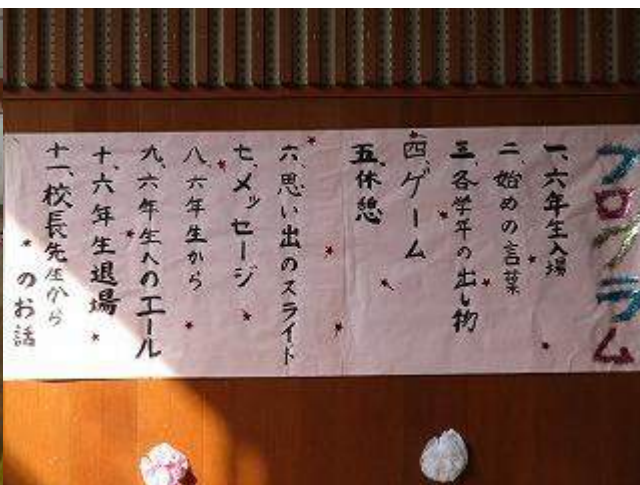 プログラム
一、六年生入場
二、始めの言葉
三、各学年の出し物
四、ゲーム
五、休憩
六、思い出のスライド
七、メッセージ
八、六年生から
九、六年生へのエール
十、六年生退場
十一、校長先生から
のお話